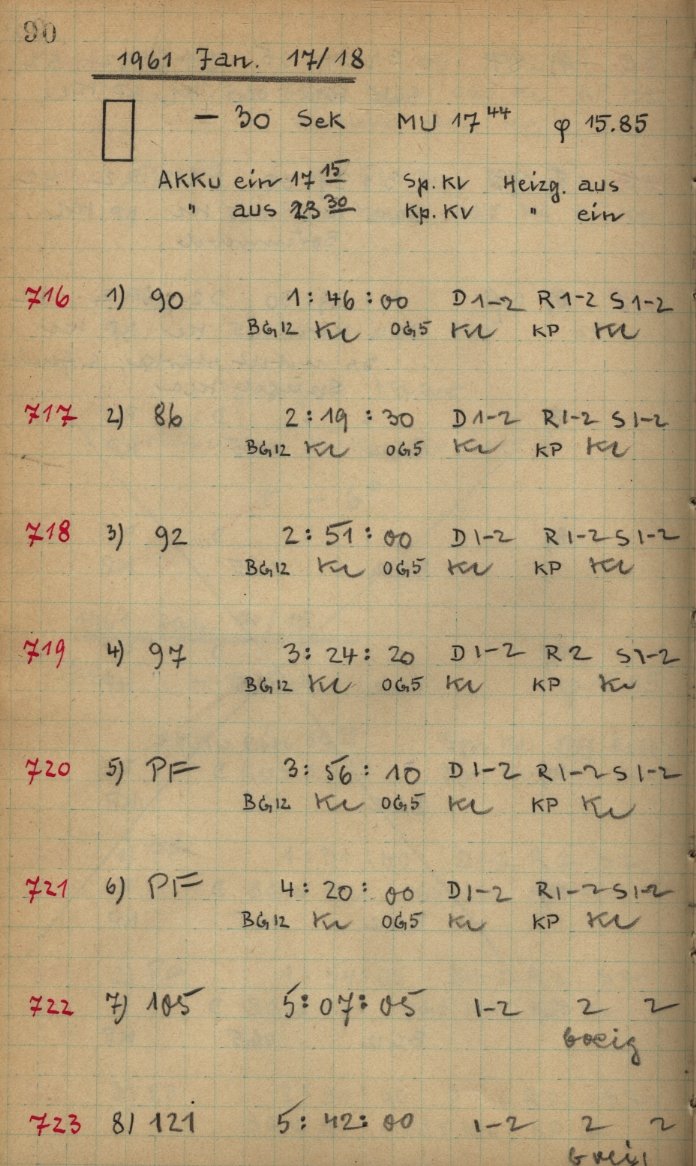 90
1961 Jan. 17/18
— 30 Sek MU 17 44 φ 15.85
AKKU ein 17 15 Sp. KV Heizg. aus
" aus 23 30 Kp. KV " ein
716 1) 90 1 : 46 : 00 D 1-2 R 1-2 S 1-2
BG12 Kl OG5 Kl KP Kl
717 2) 86 2 : 19 : 30 D 1-2 R 1-2 S 1-2
BG12 Kl OG5 Kl KP Kl
718 3) 92 2 : 51 : 00 D 1-2 R 1-2 S 1-2
BG12 Kl OG5 Kl KP Kl
719 4) 97 3 : 24 : 20 D 1-2 R 2 S 1-2
BG12 Kl OG5 Kl KP Kl
720 5) PF 3 : 56 : 10 D 1-2 R 1-2 S 1-2
BG12 Kl OG5 Kl KP Kl
721 6) PF 4 : 20 : 00 D 1-2 R 1-2 S 1-2
BG12 Kl OG5 Kl KP Kl
722 7) 105 5 : 07 : 05 1-2 2 2
boeig
723 8) 121 5 : 42 : 00 1-2 2 2